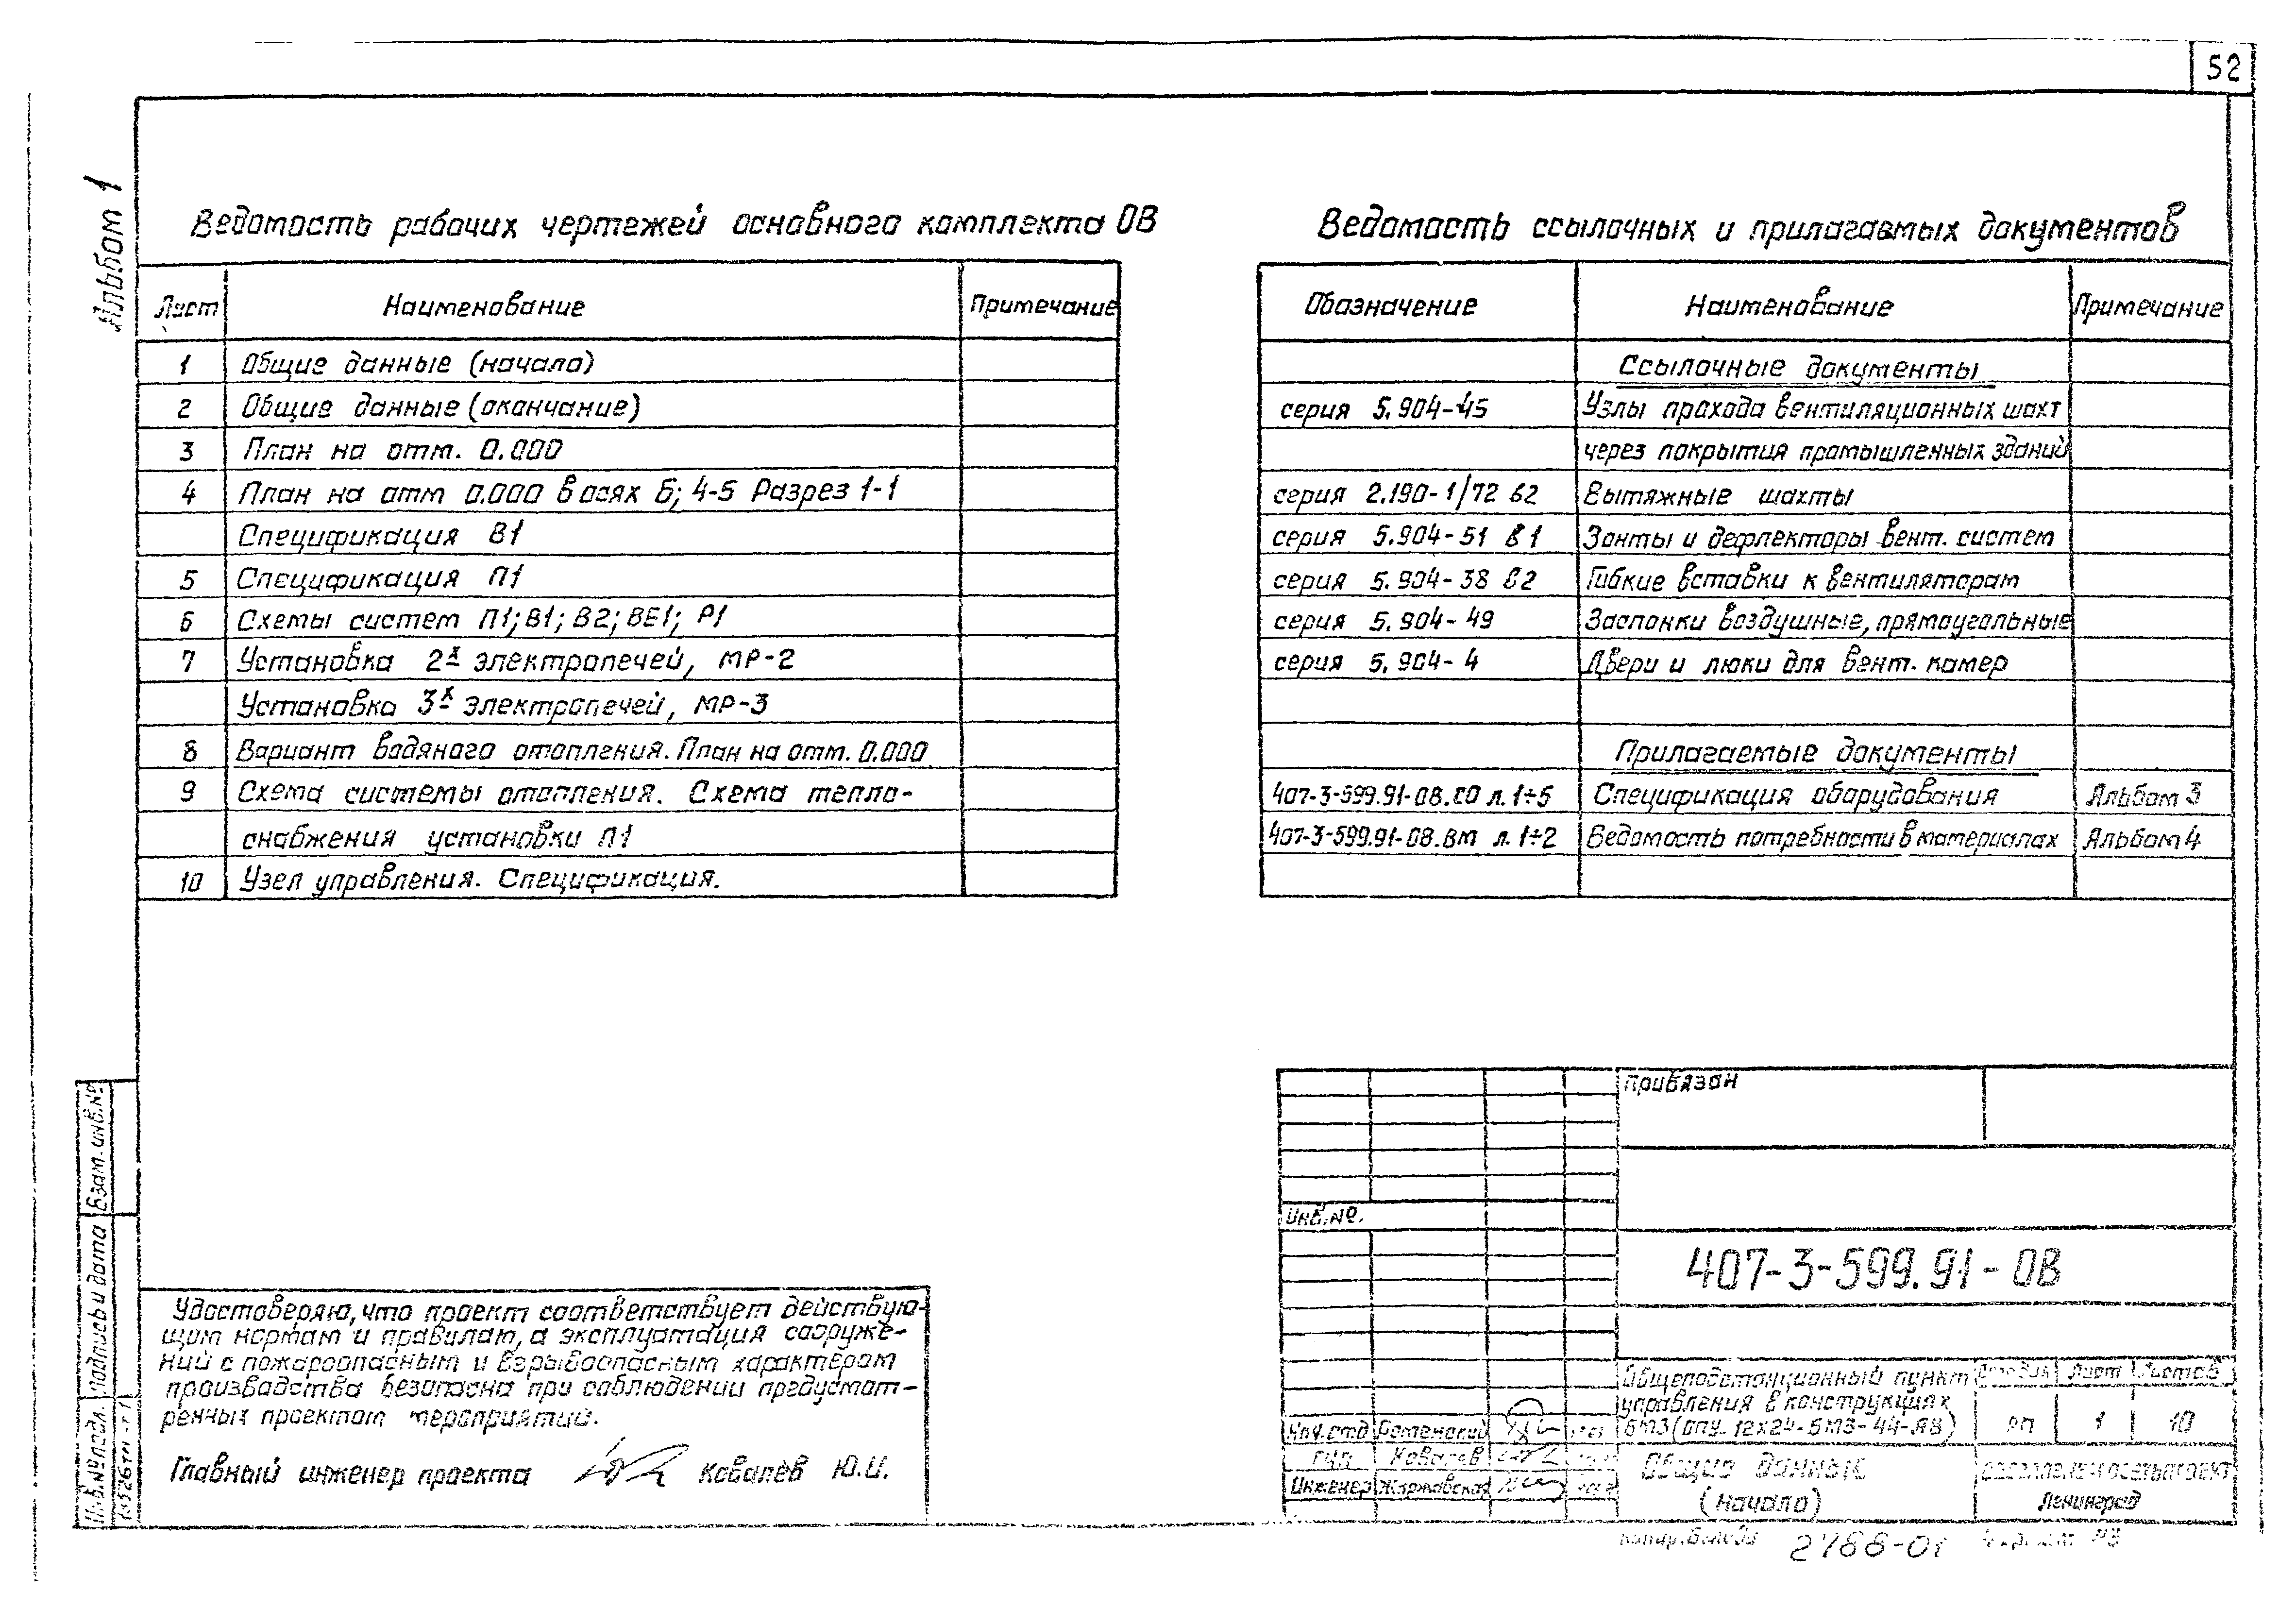 52
Альбом 1
Ведомость рабочих чертежей основного комплекта ОВ
Лист Наименование Примечание
1 Общие данные (начало)
2 Общие данные (окончание)
3 План на отм. 0.000
4 План на отм 0.000 в осях Б; 4-5 Разрез 1-1
Спецификация В1
5 Спецификация П1
6 Схемы систем П1; В1; В2; ВЕ1; Р1
7 Установка 2х электропечей, МР-2
Установка 3х электропечей, МР-3
8 Вариант водяного отопления. План на отм. 0.000
9 Схема системы отопления. Схема тепло-
снабжения установки П1
10 Узел управления. Спецификация.
Ведомость ссылочных и прилагаемых документов
Обозначение Наименование Примечание
Ссылочные документы
серия 5.904-45 Узлы прохода вентиляционных шахт
через покрытия промышленных зданий
серия 2.190-1/72 в2 Вытяжные шахты
серия 5.904-51 в1 Зонты и дефлекторы вент. систем
серия 5.904-38 в2 Гибкие вставки к вентиляторам
серия 5.904-49 Заслонки воздушные, прямоугольные
серия 5.904-4 Двери и люки для вент. камер
Прилагаемые документы
407-3-599.91-ОВ.СО л.1÷5 Спецификация оборудования Альбом 3
407-3-599.91-ОВ.ВМ л.1÷2 Ведомость потребности в материалах Альбом 4
Удостоверяю, что проект соответствует действую-
щим нормам и правилам, а эксплуатация сооруже-
ний с пожароопасным и взрывоопасным характером
производства безопасна при соблюдении предусмот-
ренных проектом мероприятий.
Главный инженер проекта Ковалёв Ю.И.
Взам. инв. №
Подпись и дата
Инв. № подл.
Привязан
Инв. №.
407-3-599.91-ОВ
Общеподстанционный пункт
управления в конструкциях
БМЗ (ОПУ-12х24-БМЗ-44-ЯВ)
Стадия Лист Листов
РП 1 10
Нач. отд Роменский
ГИП Ковалев
Инженер Жаржавская
Общие данные
(начало)
Ленинград